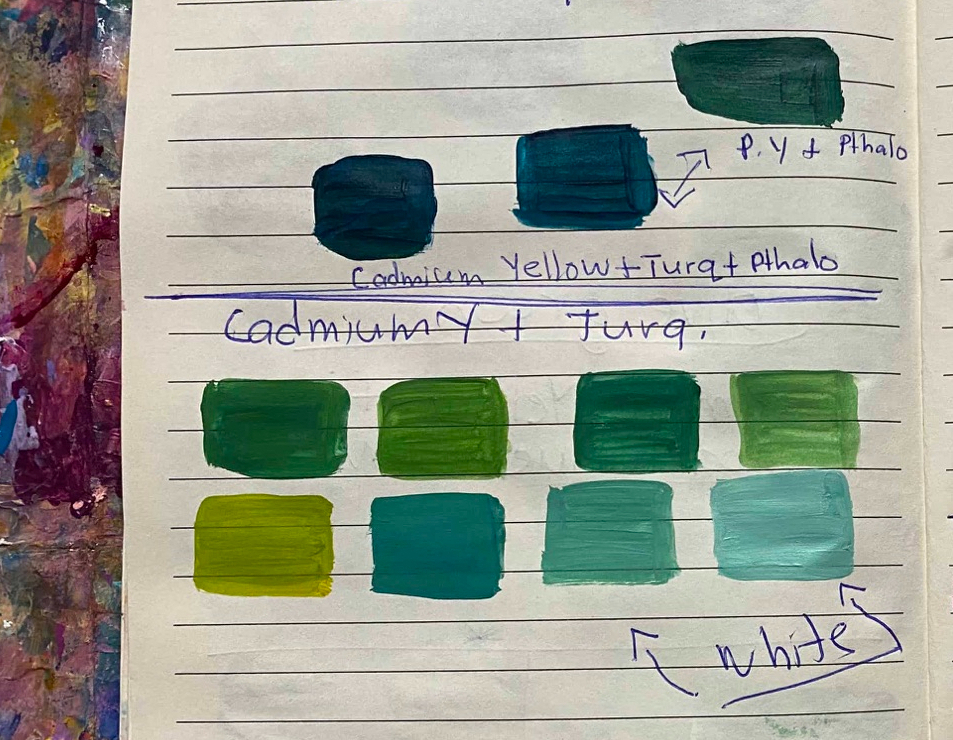 P.Y + Pthalo
Cadmium Yellow + Turq + Pthalo
Cadmium Y + Turq.
white